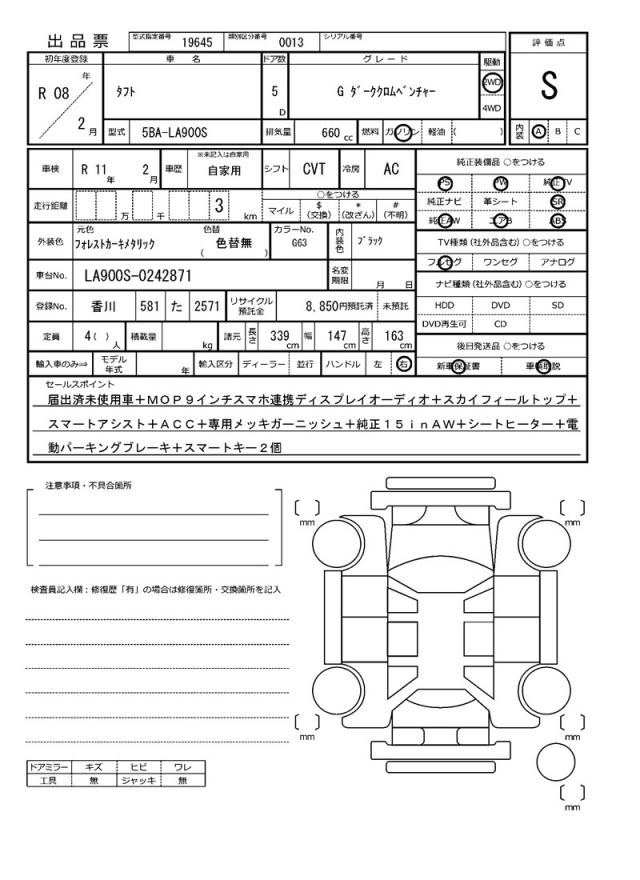 出品票 型式指定番号 19645 類別区分番号 0013 シリアル番号
評価点
S
内装 A B C
初年度登録 車名 ドア数 グレード 駆動
R 08 年 2 月 タフト 5 D G ダーククロムベンチャー 2WD 4WD
型式 5BA-LA900S 排気量 660 cc 燃料 ガソリン 軽油 ( )
車検 R 11 年 2 月 車歴 ※未記入は自家用 自家用 シフト CVT 冷房 AC
走行距離 万 千 3 km ○をつける
マイル $(交換) *(改ざん) #(不明)
外装色 元色 フォレストカーキメタリック 色替 ( 色替無 ) カラーNo. G63 内装色 ブラック
車台No. LA900S-0242871 名変期限 月 日
登録No. 香川 581 た 2571 リサイクル預託金 8,850円預託済 未預託
定員 4( )人 積載量 kg 諸元 長さ 339cm 幅 147cm 高さ 163cm
輸入車のみ⇒ モデル年式 年 輸入区分 ディーラー 並行 ハンドル 左 右
純正装備品 ○をつける
PS PW 純正TV
純正ナビ 革シート SR
純正AW エアB ABS
TV種類(社外品含む) ○をつける
フルセグ ワンセグ アナログ
ナビ種類(社外品含む) ○をつける
HDD DVD SD
DVD再生可 CD
後日発送品 ○をつける
新車保証書 車輌取説
セールスポイント
届出済未使用車+MOP9インチスマホ連携ディスプレイオーディオ+スカイフィールトップ+
スマートアシスト+ACC+専用メッキガーニッシュ+純正15inAW+シートヒーター+電
動パーキングブレーキ+スマートキー2個
注意事項・不具合箇所
検査員記入欄:修復歴「有」の場合は修復箇所・交換箇所を記入
ドアミラー キズ ヒビ ワレ
工具 無 ジャッキ 無
mm
mm
mm
mm
mm